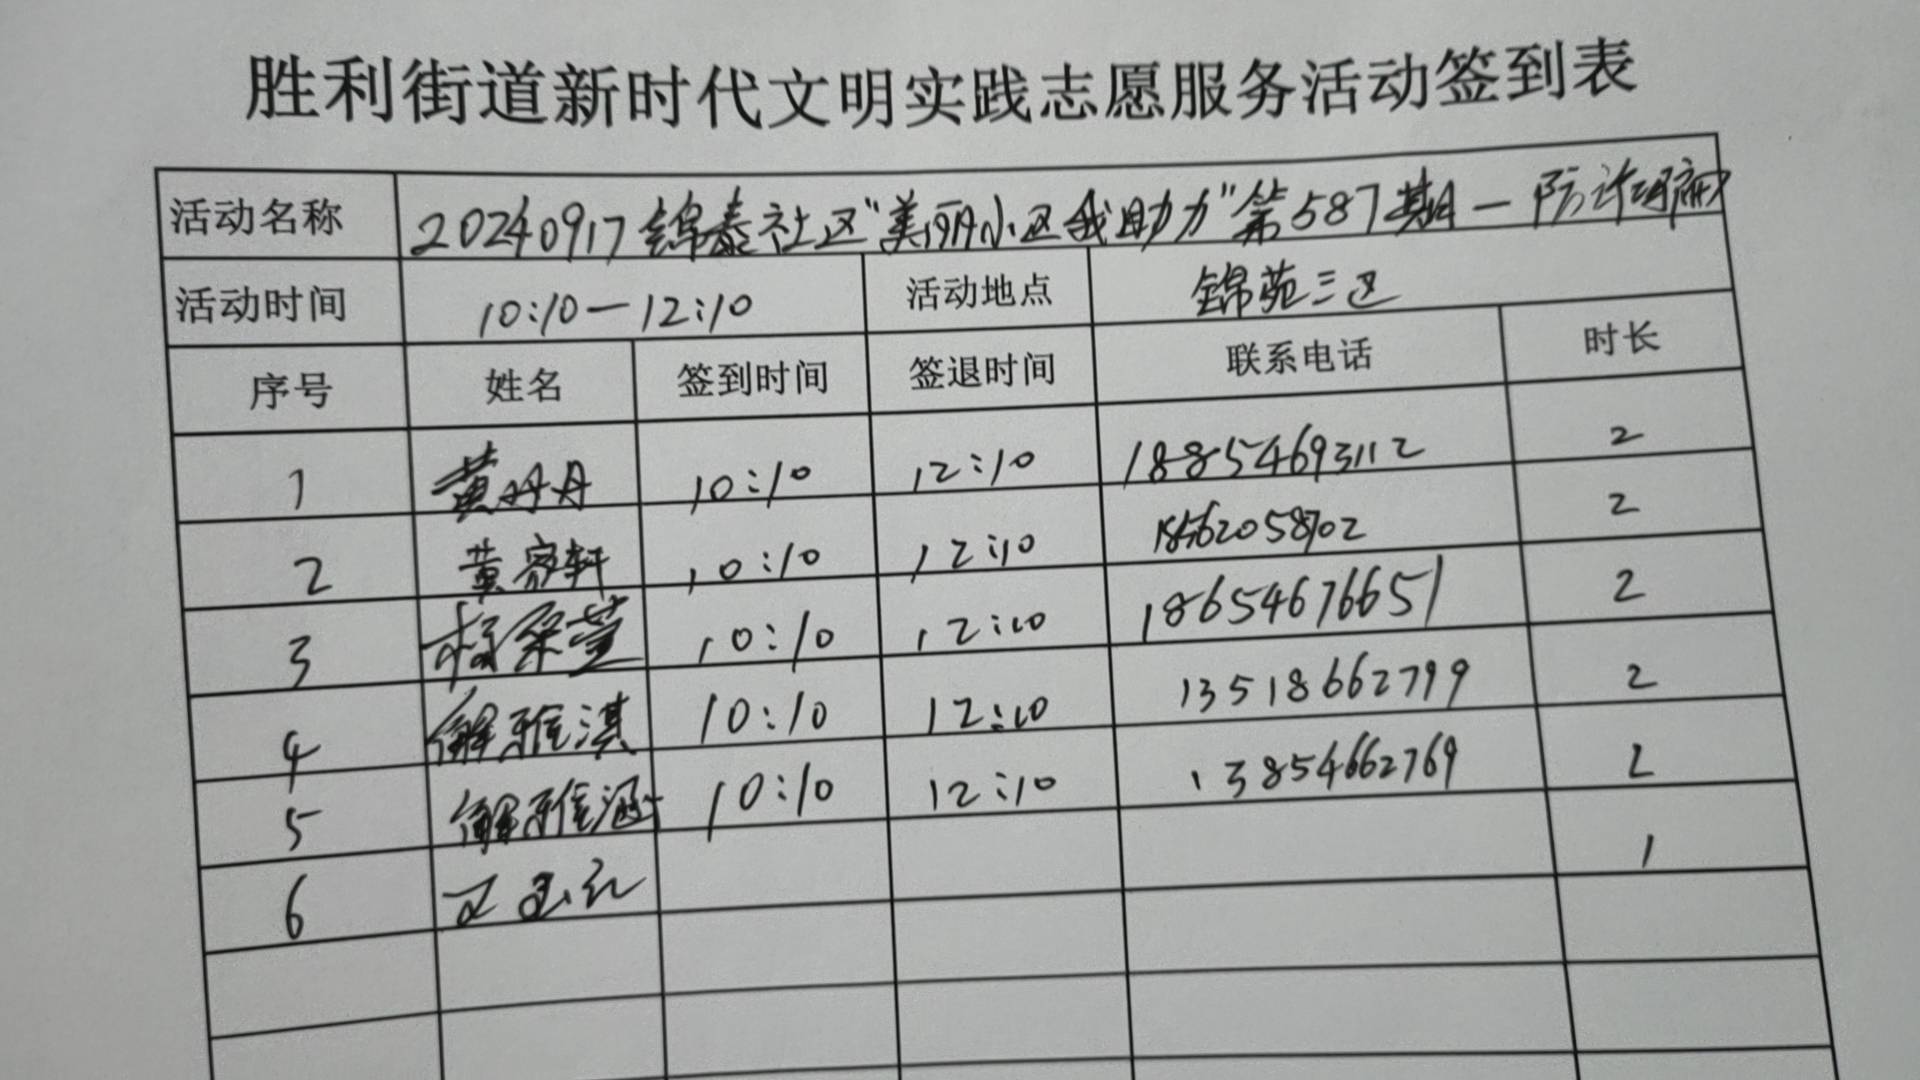 胜利街道新时代文明实践志愿服务活动签到表
活动名称 20240917锦泰社区"美丽小区我助力"第587期一防诈
活动时间 10:10—12:10 活动地点 锦苑三区
序号 姓名 签到时间 签退时间 联系电话 时长
1 黄丹丹 10:10 12:10 18854693112 2
2 黄容轩 10:10 12:10 18562058702 2
3 杨采萱 10:10 12:10 18654676651 2
4 解雅淇 10:10 12:10 13518662799 2
5 解雅涵 10:10 12:10 13854662769 2
6 1